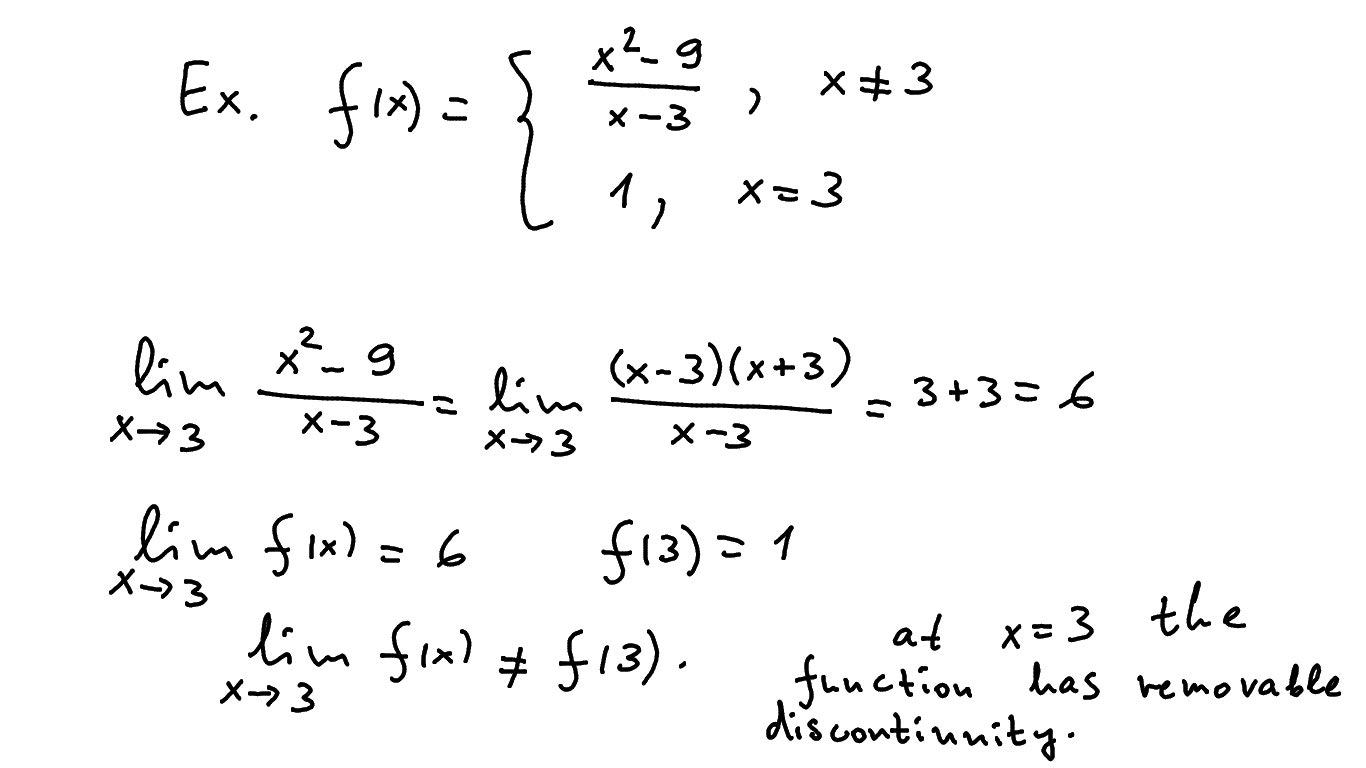 Ex. f(x) = { (x² - 9)/(x - 3) , x ≠ 3
1 , x = 3
lim x→3 (x² - 9)/(x - 3) = lim x→3 ((x - 3)(x + 3))/(x - 3) = 3 + 3 = 6
lim x→3 f(x) = 6 f(3) = 1
lim x→3 f(x) ≠ f(3).
at x = 3 the
function has removable
discontinuity.